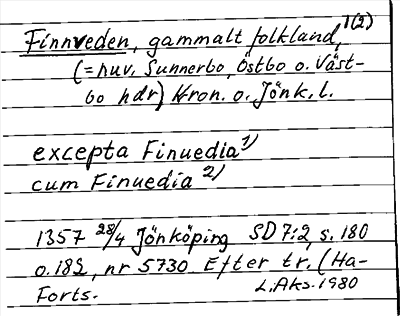 Finnveden, gammalt folkland, 1(2)
(= huv. Sunnerbo, Östbo o. Väst-
bo hdr) Kron. o. Jönk. l.
excepta Finuedia 1)
cum Finuedia 2)
1357 28/4 Jönköping SD 7:2, s. 180
o. 182, nr 5730 Efter tr. (Ha-
Forts. L. Aks. 1980